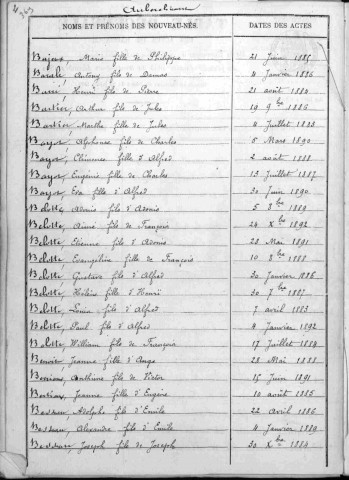 NOMS ET PRÉNOMS DES NOUVEAU-NÉS. DATES DES ACTES
Marie fille de Philippe 21 Juin 1885
Antony fils de Damas 4 Janvier 1886
Henri fils de Pierre 21 août 1884
Arthur fils de Jules 19 9bre 1886
Marthe fille de Jules 4 Juillet 1888
Bayer, Alphonse fils de Charles 5 Mars 1890
Bayer, d'Alfred 2 août 1888
Bayer, Eugénie fille de Charles 13 Juillet 1887
Bayer, Eva fille d'Alfred 30 Juin 1890
Belotte, Adonis fils d'Adonis 5 1889
Belotte, Aimé fils de François 24 Xbre 1892
Belotte, Etienne fils d'Adonis 28 Mai 1891
Belotte, Evangéline fille de François 10 8bre 1888
Belotte, Gustave fils d'Alfred 30 Janvier 1886
Belotte, Hélène fille d'Henri 30 7bre 1887
Belotte, Louise fille d'Alfred 7 avril 1883
Belotte, Paul fils d'Alfred 4 Janvier 1892
Belotte, William fils de François 17 Juillet 1884
Benoit, Jeanne fille d'Ange 28 Mai 1888
Anthime fils de Victor 15 Juin 1891
Jeanne fille d'Eugène 10 août 1885
Adolphe fils d'Emile 22 Avril 1886
Alexandre fils d'Emile 4 Janvier 1889
Joseph fils de Joseph 30 Xbre 1884